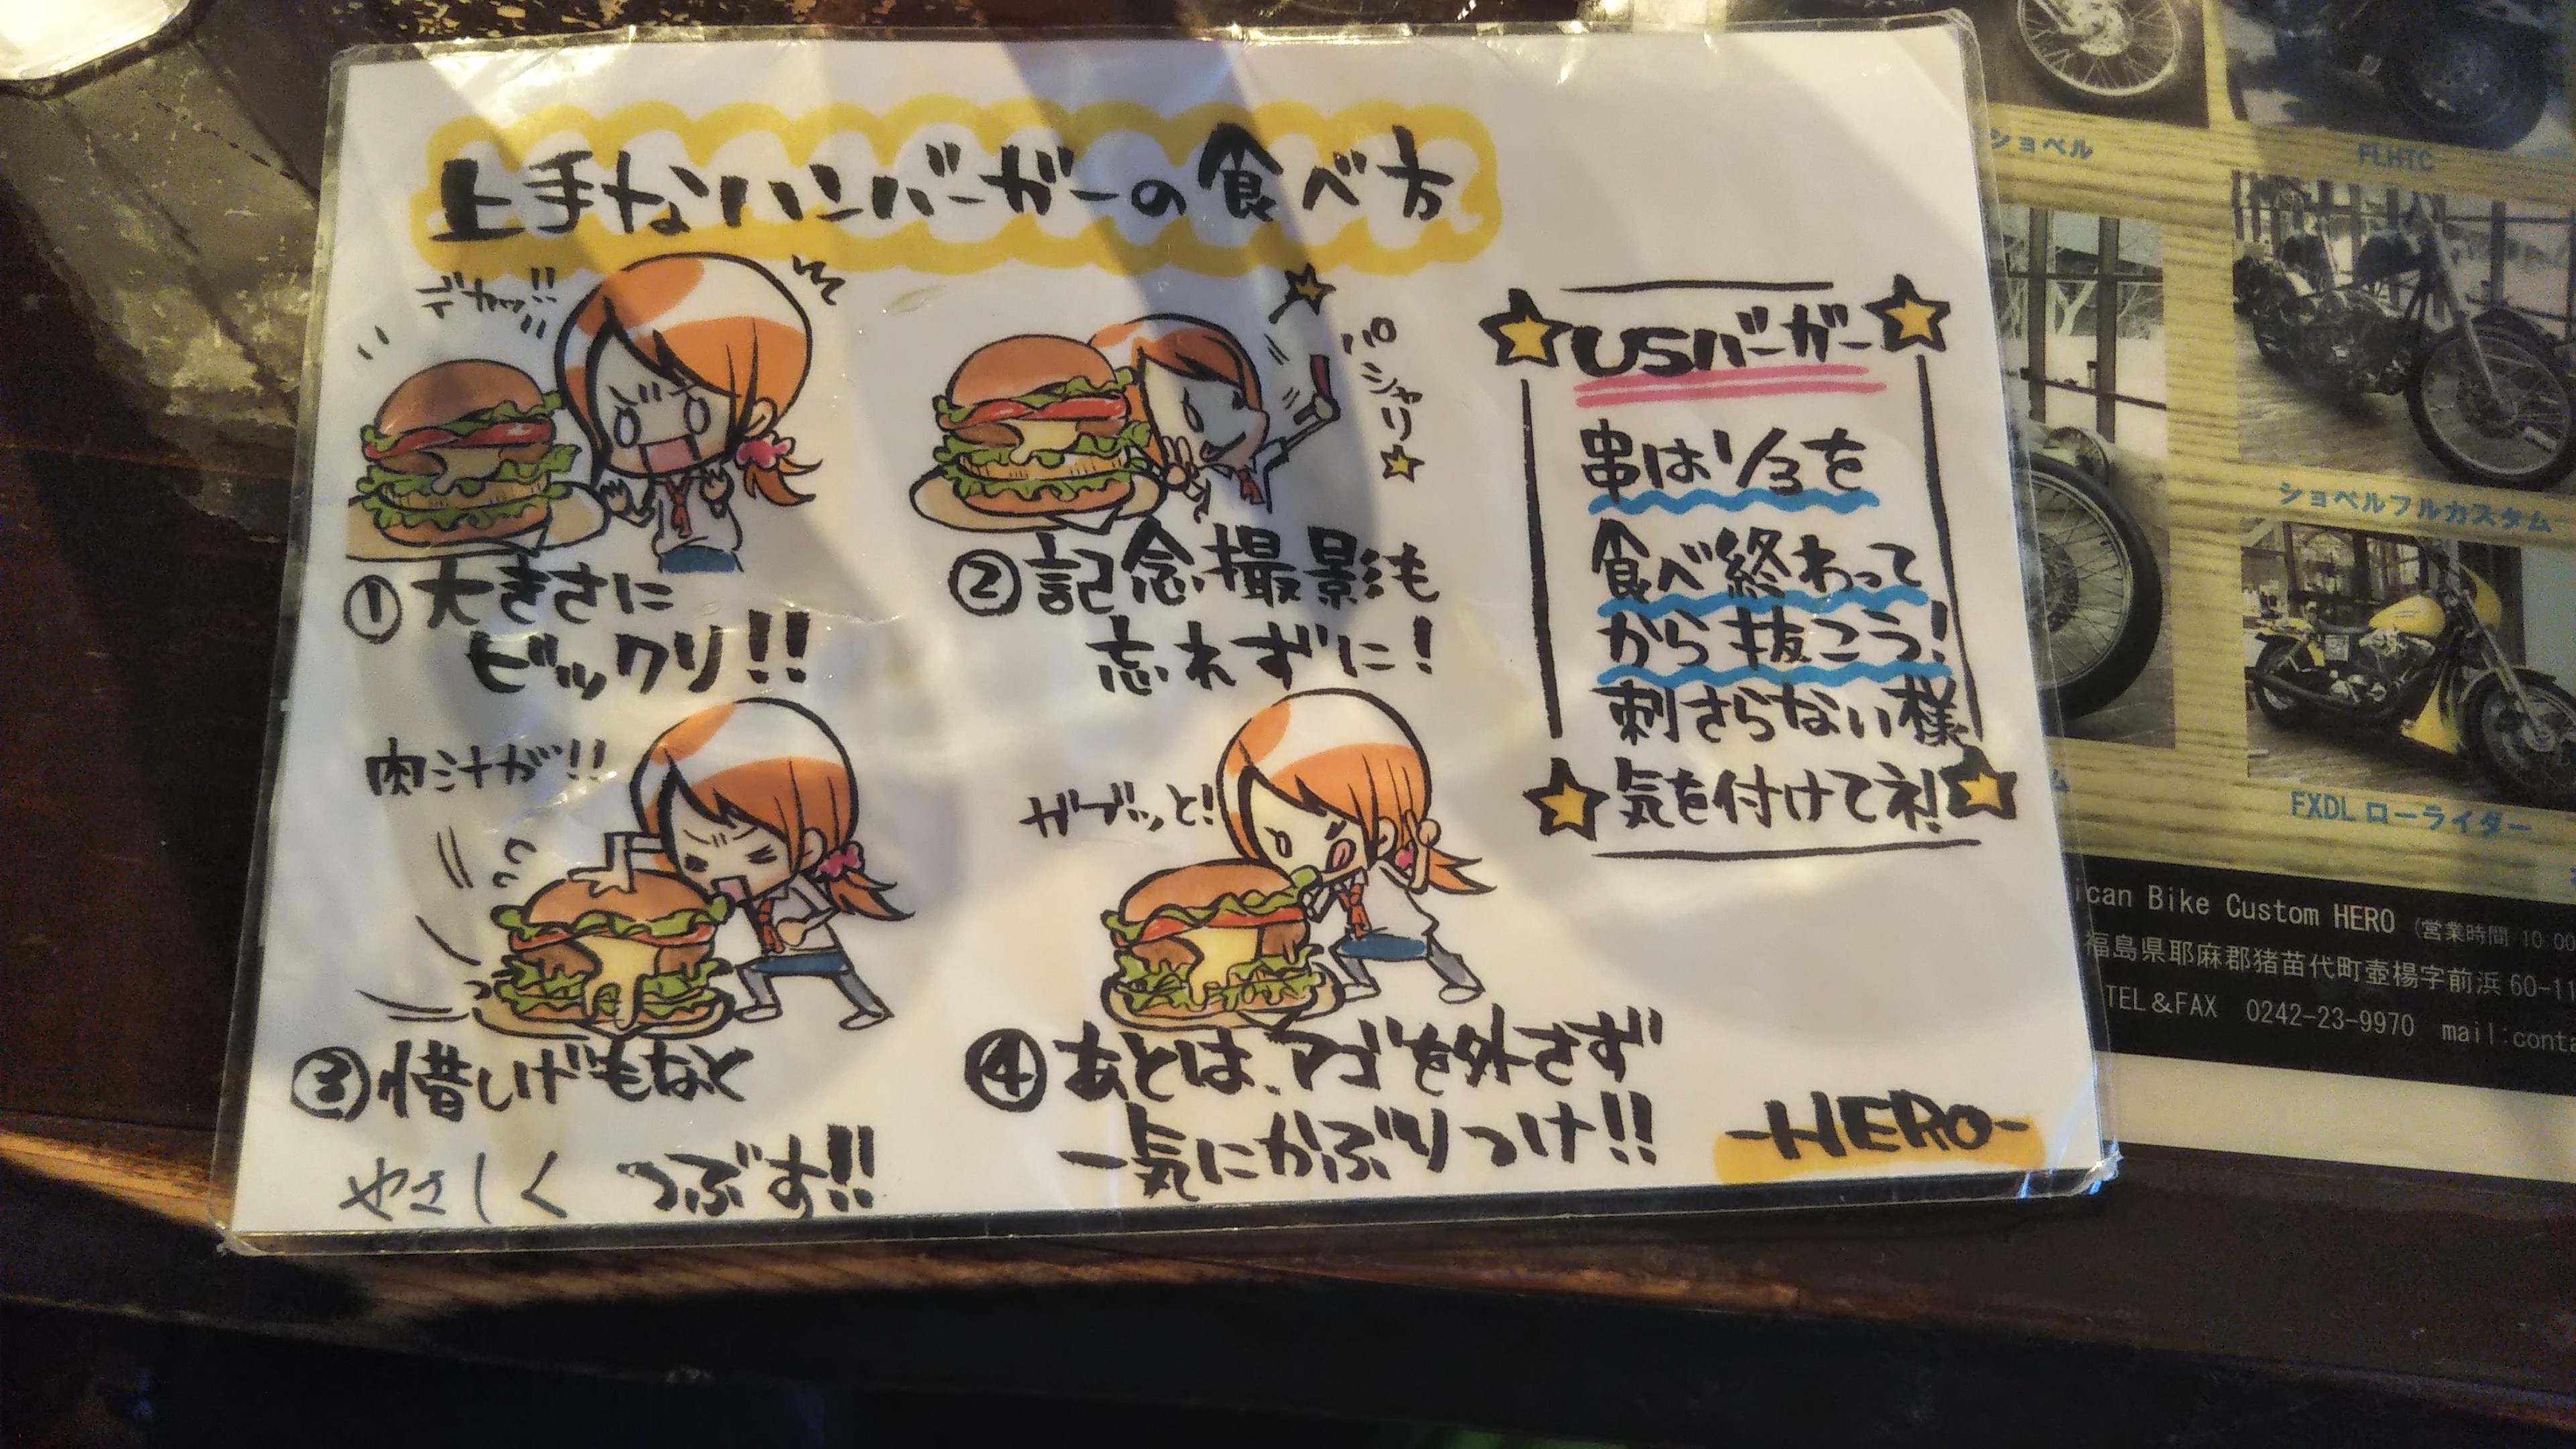 上手なハンバーガーの食べ方
デカッ!!
①大きさに
ビックリ!!
パシャリ
②記念撮影も
忘れずに!
肉汁が!!
③惜しげもなく
やさしく つぶす!!
ガブッと!
④あとは、アゴを外さず
一気にかぶりつけ!!
USバーガー
串は1/3を
食べ終わって
から抜こう!
刺さらない様
気を付けてネ!
-HERO-
ショベル
FLHTC
ショベルフルカスタム
ム
FXDL ローライダー
ican Bike Custom HERO (営業時間 10:00
福島県耶麻郡猪苗代町壺楊字前浜 60-11
TEL&FAX 0242-23-9970 mail:conta